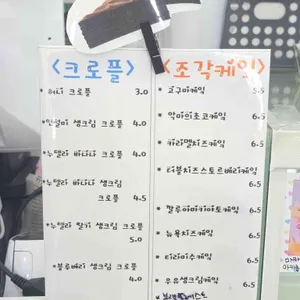 <크로플>
*허니 크로플 3.0
*인절미 생크림 크로플 4.0
*누텔라 바나나 크로플 4.0
*누텔라 바나나 생크림
크로플 4.5
*누텔라 딸기 생크림 크로플
5.0
*블루베리 생크림 크로플
4.0
<조각케익>
* 고구마케익 5.5
* 악마의초코케익 6.5
* 카라멜치즈케익 6.5
* 더블치즈스토르베리케익
6.5
* 말루마마키아토케익 6.5
* 뉴욕치즈케익 6.5
* 티라미수케익 6.5
* 우유생크림케익 6.5